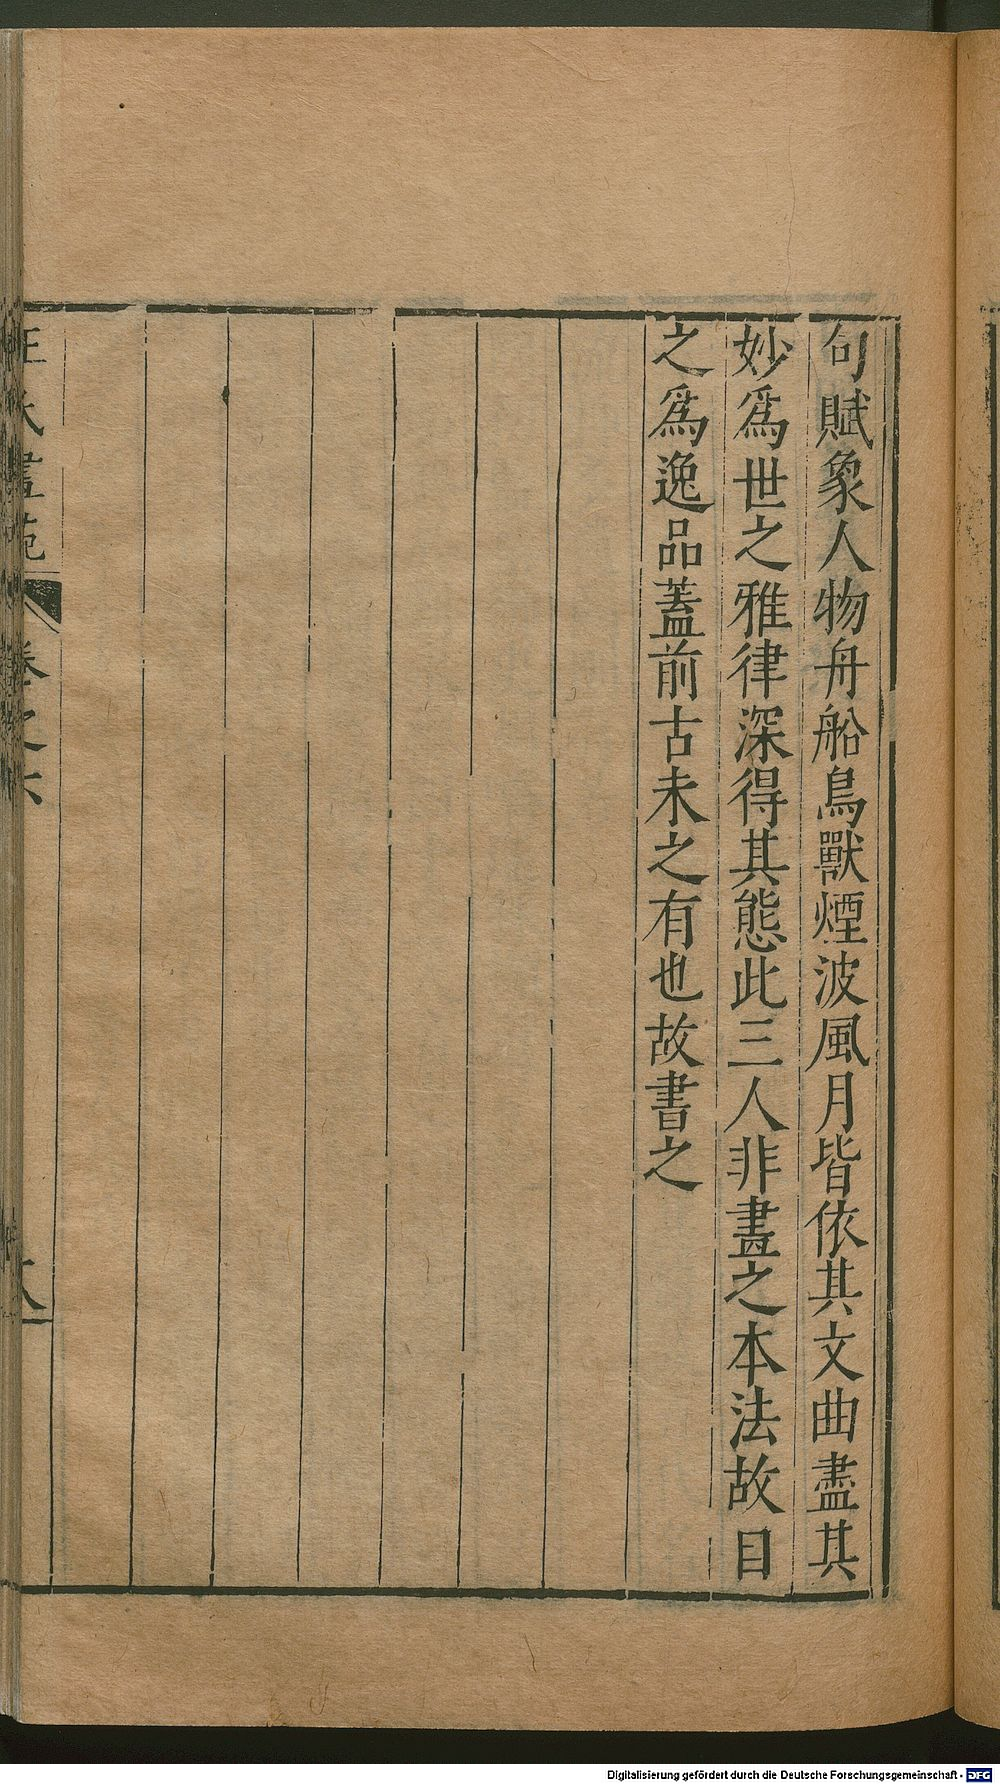 句賦象人物舟船鳥獸煙波風月皆依其文曲盡其
妙爲世之雅律深得其態此三人非畫之本法故目
之爲逸品蓋前古未之有也故書之
王氏畫苑 卷之六
Digitalisierung gefördert durch die Deutsche Forschungsgemeinschaft - DFG